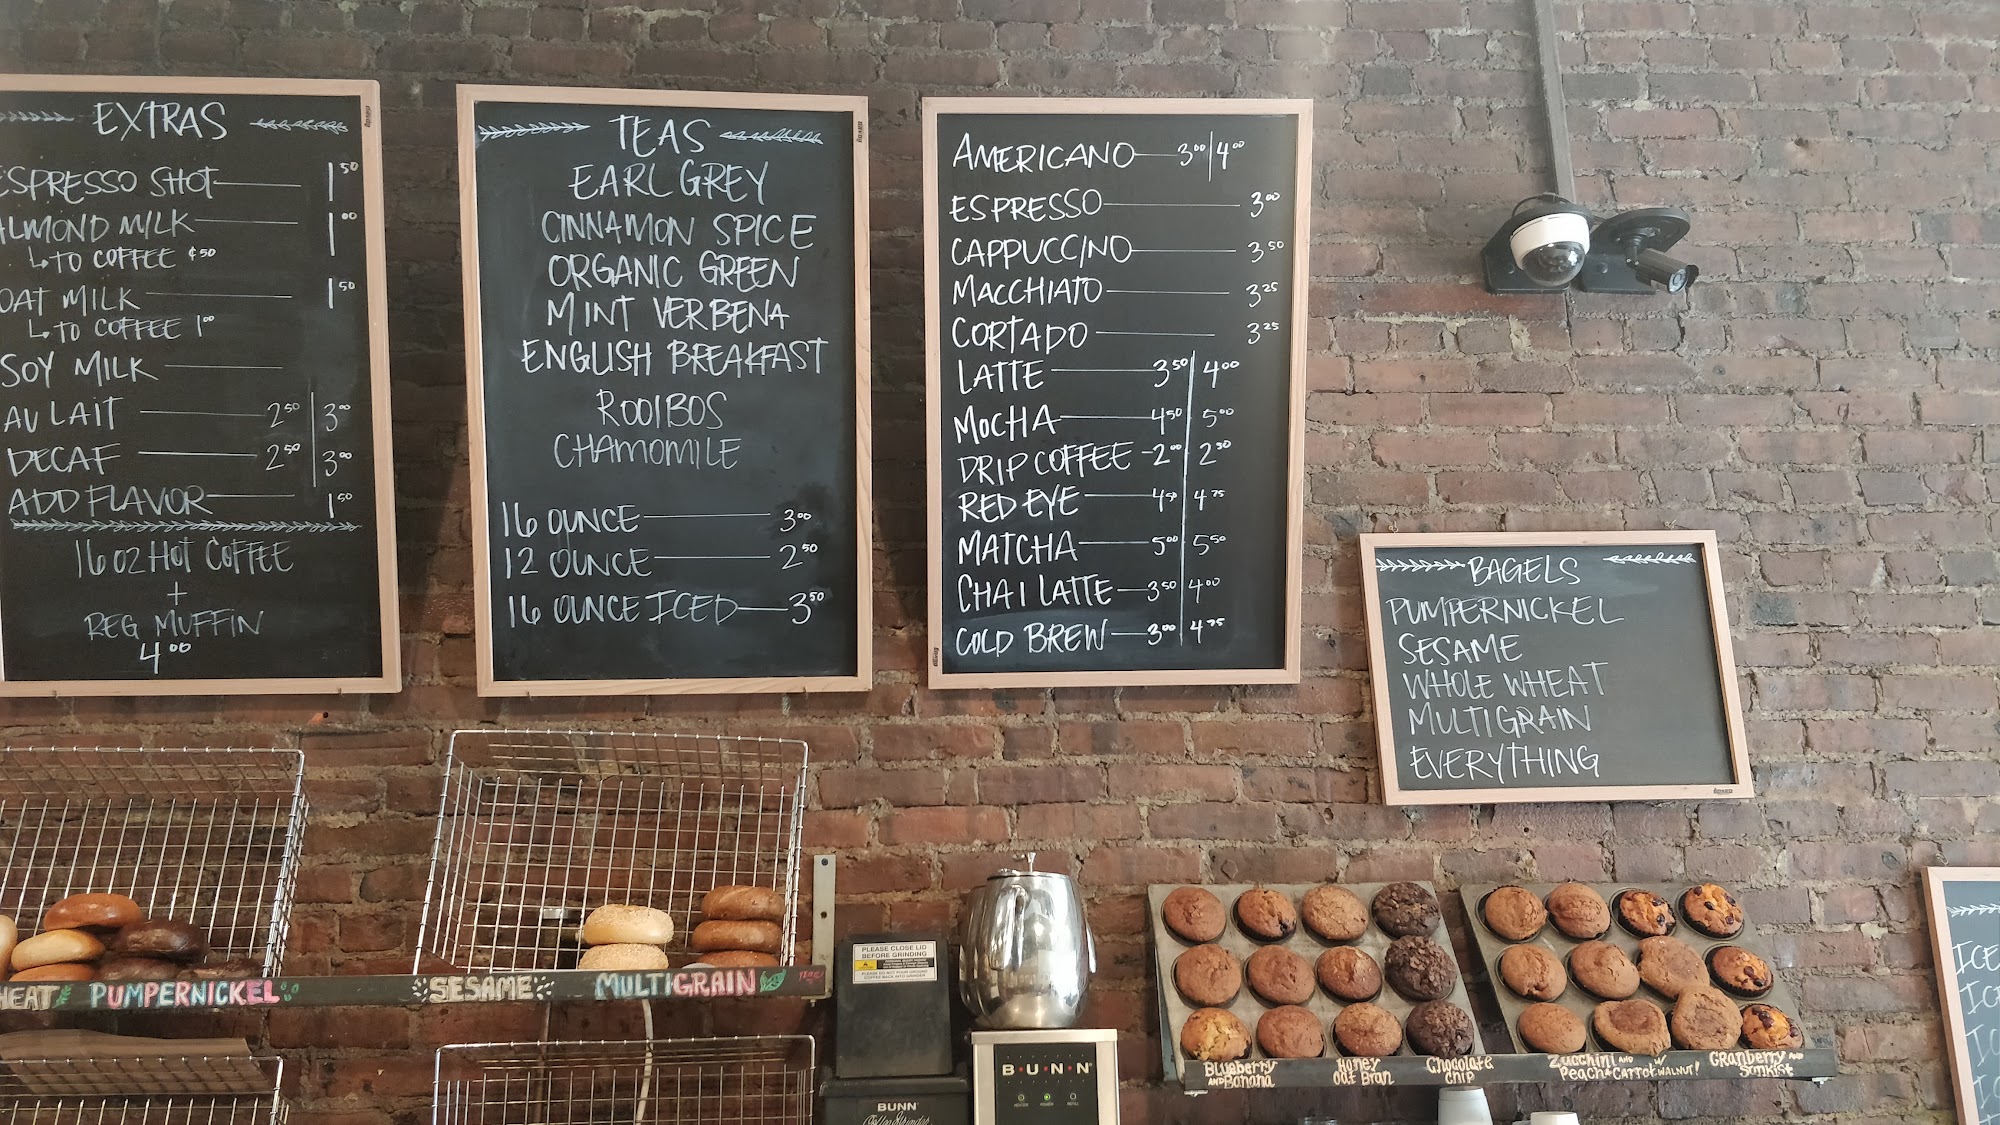 EXTRAS
ESPRESSO SHOT 1.50
ALMOND MILK 1.00
↳TO COFFEE ¢50
OAT MILK 1.50
↳TO COFFEE 1.00
SOY MILK
AU LAIT 2.50 | 3.00
DECAF 2.50 | 3.00
ADD FLAVOR 1.50
16 OZ HOT COFFEE
+
REG MUFFIN
4.00
TEAS
EARL GREY
CINNAMON SPICE
ORGANIC GREEN
MINT VERBENA
ENGLISH BREAKFAST
ROOIBOS
CHAMOMILE
16 OUNCE 3.00
12 OUNCE 2.50
16 OUNCE ICED 3.50
AMERICANO 3.00 | 4.00
ESPRESSO 3.00
CAPPUCCINO 3.50
MACCHIATO 3.25
CORTADO 3.25
LATTE 3.50 | 4.00
MOCHA 4.50 | 5.00
DRIP COFFEE 2.00 | 2.50
RED EYE 4.50 | 4.75
MATCHA 5.00 | 5.50
CHAI LATTE 3.50 | 4.00
COLD BREW 3.00 | 4.75
BAGELS
PUMPERNICKEL
SESAME
WHOLE WHEAT
MULTIGRAIN
EVERYTHING
ICE
HEAT PUMPERNICKEL
SESAME MULTIGRAIN
PLEASE CLOSE LID
BEFORE GRINDING
BUNN
BUNN
Blueberry
AND Banana
Honey
Oat Bran
Chocolate
Chip
Zucchini AND
Peach & Carrot w/ WALNUT!
Cranberry AND
Sunkist